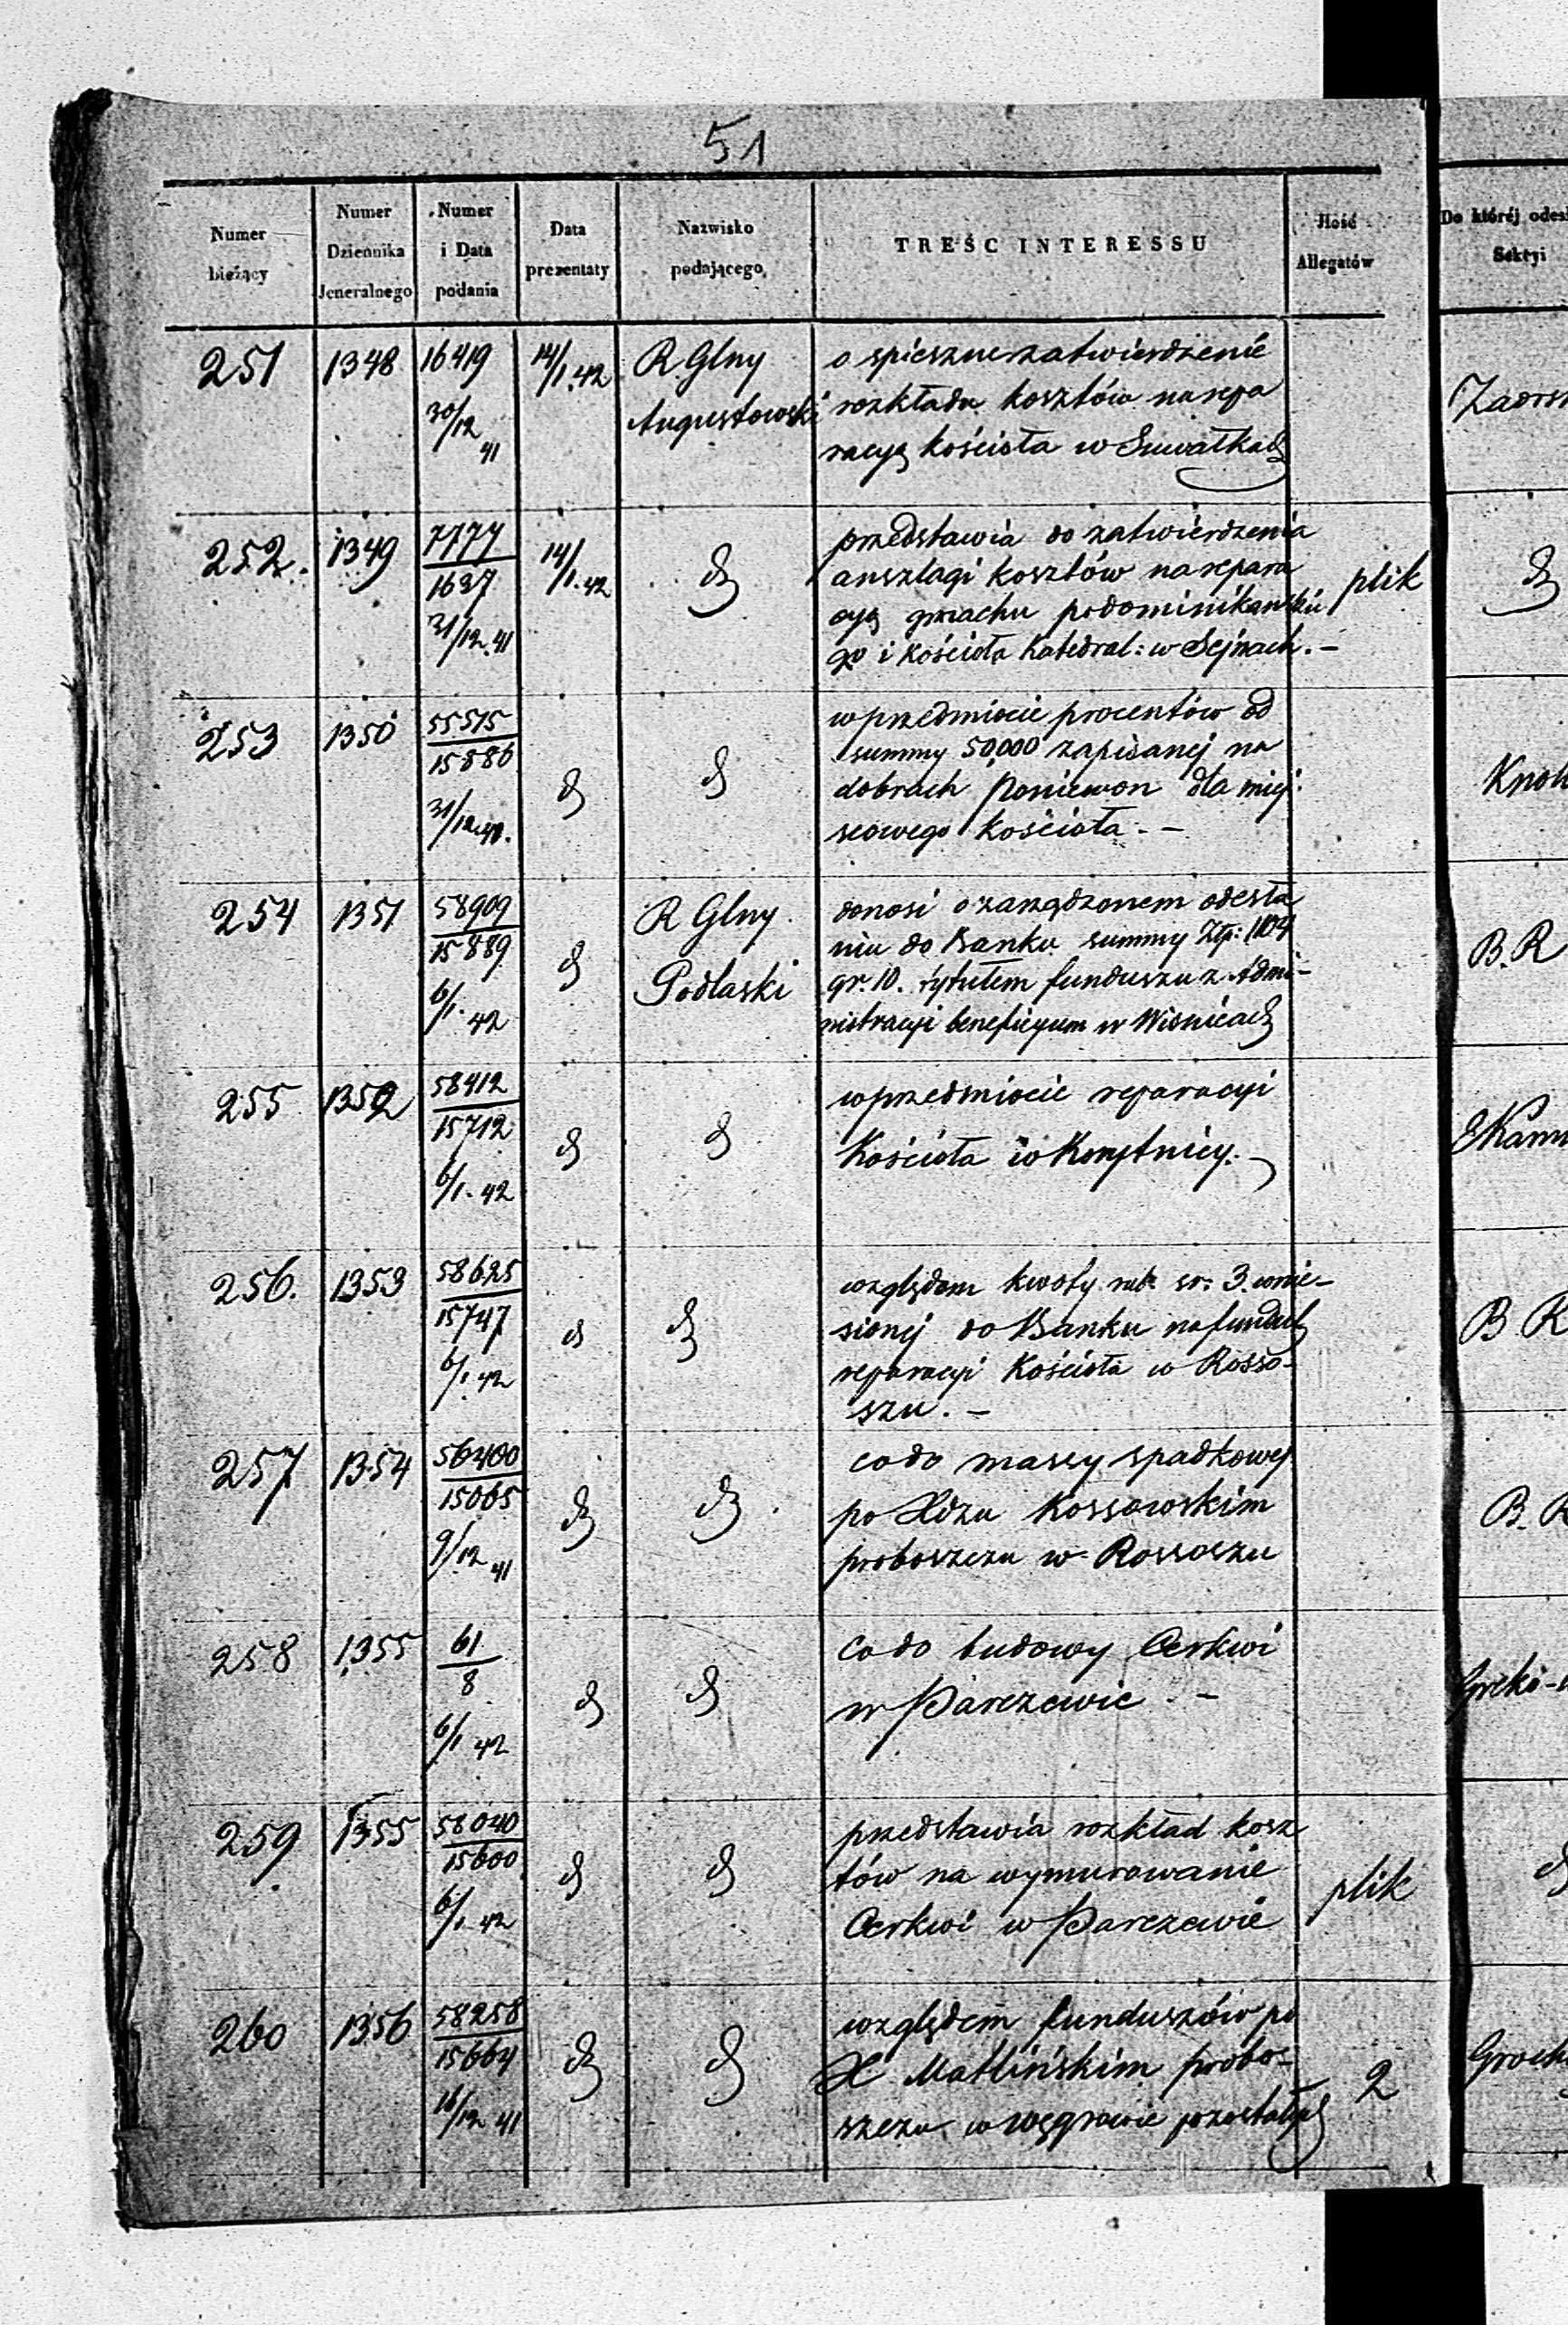 51
Numer bieżący | Numer Dziennika Jeneralnego | Numer i Data podania | Data prezentaty | Nazwisko podającego | TREŚC INTERESSU | Ilość Allegatów | Do któréj Sekcyi
251 | 1348 | 16419 | 14/1.42 | R Glny | o spieszne zatwierdzenie
30/12 41 | Augustowski | rozkładu kosztów na repa
racyę kościoła w Suwałkach
252. | 1349 | 7774 | 14/1.42 | d | przedstawia do zatwierdzenia | plik | d
1637 | anszlagi kosztów na repara
31/12.41 | cyę gmachu podominikańskie
go i kościoła katedral: w Sejnach. –
253 | 1350 | 55515 | d | d | w przedmiocie procentów od
15886 | summy 50,000 zapisanej na
31/12.41. | dobrach Poniemon dla miej
scowego kościoła. –
254 | 1351 | 58909 | d | R Glny | donosi o zarządzonem odesła | B.R
15889 | Podlaski | niu do Banku summy Złp: 1104
6/1. 42 | gr. 10. tytułem funduszu z Admi–
nistracyi beneficyum w Wisnicach
255 | 1352 | 58412 | d | d | w przedmiocie reparacyi
15712 | Kościoła w Korytnicy. –
6/1. 42
256. | 1353 | 58625 | d | d | względem kwoty rub. sr. 3. wnie– | B R
15747 | sionej do Banku na fundusz
6/1. 42 | reparacyi Kościoła w Rosso–
szu. –
257 | 1354 | 56400 | d | d | co do massy spadkowej | B. R
15065 | po Xdzu Kossowskim
9/12 41 | proboszczu w Rossoszu
258 | 1355 | 61 | d | d | Co do budowy Cerkwi
8 | w Parczewie. –
6/1 42
259 | 1355 | 58040 | d | d | przedstawia rozkład kosz | plik | d
15600 | tów na wymurowanie
6/1. 42 | Cerkwi w Parczewie
260 | 1356 | 58258 | d | d | względem funduszów po | 2
15664 | X Matlińskim probo–
16/12 41 | szczu w Węgrowie pozostałych